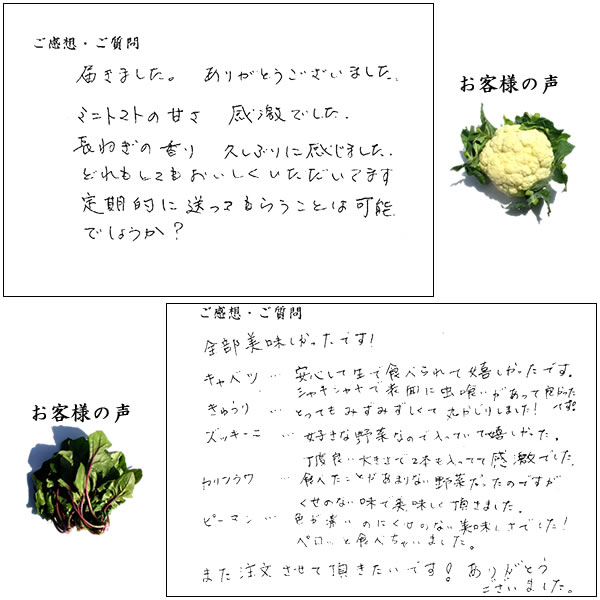 ご感想・ご質問
届きました。 ありがとうございました.
ミニトマトの甘さ 感激でした.
長ねぎの香り 久しぶりに感じました.
どれもとてもおいしくいただいてます
定期的に送ってもらうことは可能
でしょうか?
お客様の声
ご感想・ご質問
全部美味しかったです!
キャベツ … 安心して生で食べられて嬉しかったです。
シャキシャキで表面に虫喰いがあって良かった
きゅうり … とってもみずみずしくて丸かじりしました!
ズッキーニ … 好きな野菜なので入っていて嬉しかった。
丁度良い大きさで2本も入ってて感激でした。
お客様の声
カリフラワ … 食べたことがあまりない野菜だったのですが
くせのない味で美味しく頂きました。
ピーマン … 色が濃いのにくせのない美味しさでした!
ペロッと食べちゃいました。
また注文させて頂きたいです! ありがとう
ございました。